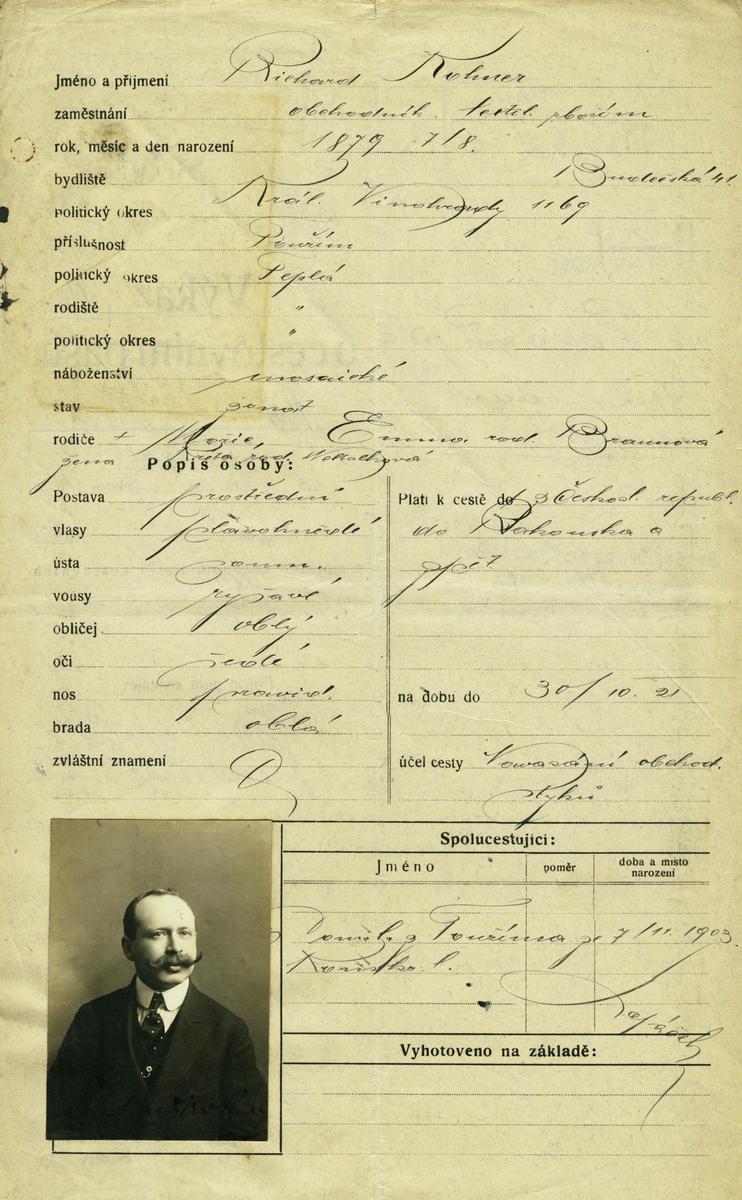 Jméno a přijmení Richard Kohner
zaměstnání obchodník. textil. zbožím
rok, měsíc a den narození 1879 7/8.
bydliště Budečská 41
politický okres Král. Vinohrady 1169
příslušnost Touřim
politický okres Teplá
rodiště "
politický okres "
náboženství mosaické
stav ženat
rodiče + Mojžíš, Emma rod. Braunová
žena Greta rod.
Popis osoby:
Postava prostřední
vlasy plavohnědé
ústa soum.
vousy ryšavé
obličej oblý
oči šedé
nos pravid.
brada oblá
zvláštní znamení
Platí k cestě do z Českosl. republ.
do Rakouska a
zpět
na dobu do 30/10. 21
účel cesty Navázání obchod.
styků
Spolucestující:
Jméno poměr doba a místo narození
Domil. z Touřima ze 7/11. 1903.
Vyhotoveno na základě: